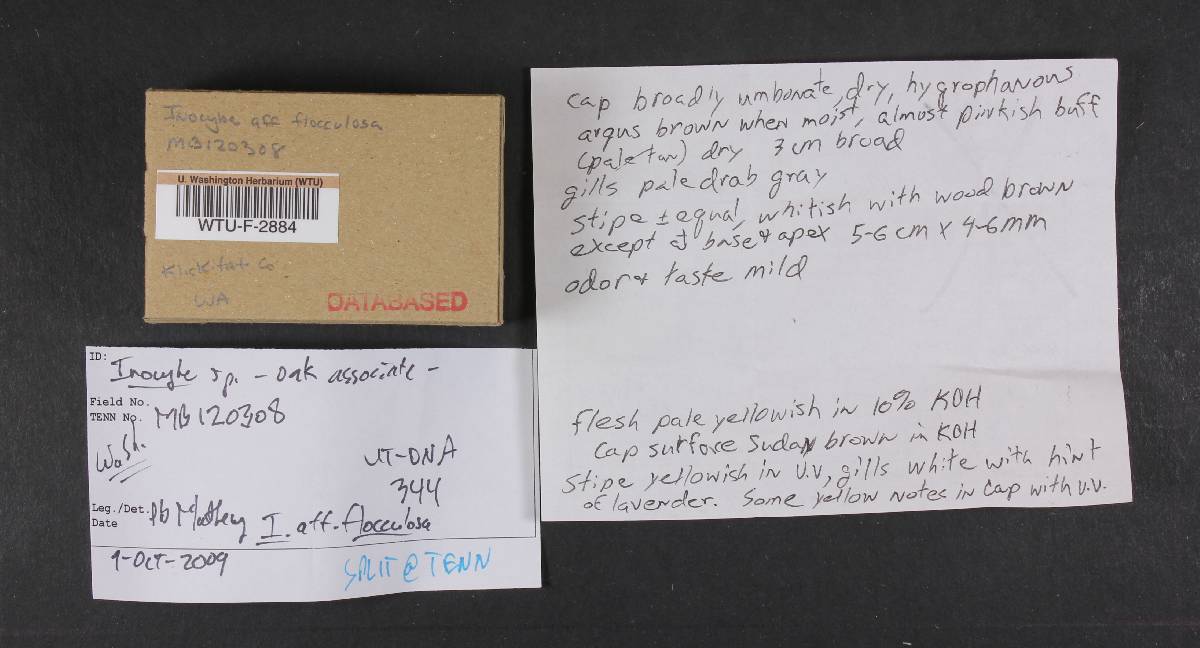 Inocybe aff flocculosa
MB120308
U. Washington Herbarium (WTU)
WTU-F-2884
Klickitat Co
WA
DATABASED
ID:
Inocybe sp. - oak associate -
Field No.
TENN No. MB120308
Wash.
UT-DNA
344
Leg./Det. PB Matheny I. aff. flocculosa
Date
1-Oct-2009
SPLIT @ TENN
cap broadly umbonate, dry, hygrophanous
argus brown when moist, almost pinkish buff
(pale tan) dry 3 cm broad
gills pale drab gray
stipe ± equal, whitish with wood brown
except @ base + apex 5-6 cm x 4-6mm
odor + taste mild
flesh pale yellowish in 10% KOH
cap surface Sudan brown in KOH
stipe yellowish in U.V, gills white with hint
of lavender. Some yellow notes in cap with U.V.